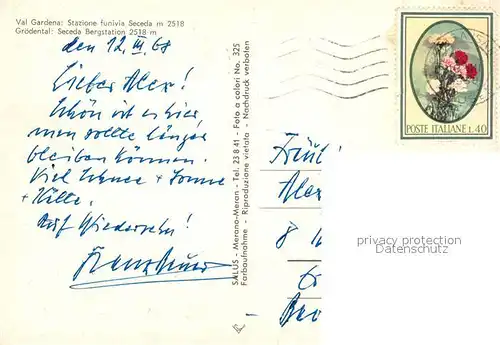 Val Gardena: Stazione funivia Seceda m 2518
Grödental: Seceda Bergstation 2518 m
den 12. III. 68
Lieber Alex!
Schön ist es hier
man sollte länger
bleiben können.
Viel Schnee + Sonne
+ Kälte.
Auf Wiedersehn!
SALUS - Merano-Meran - Tel. 23841 - Foto a colori No. 325
Farbaufnahme - Riproduzione vietata - Nachdruck verboten
POSTE ITALIANE L. 40
8
privacy protection
Datenschutz